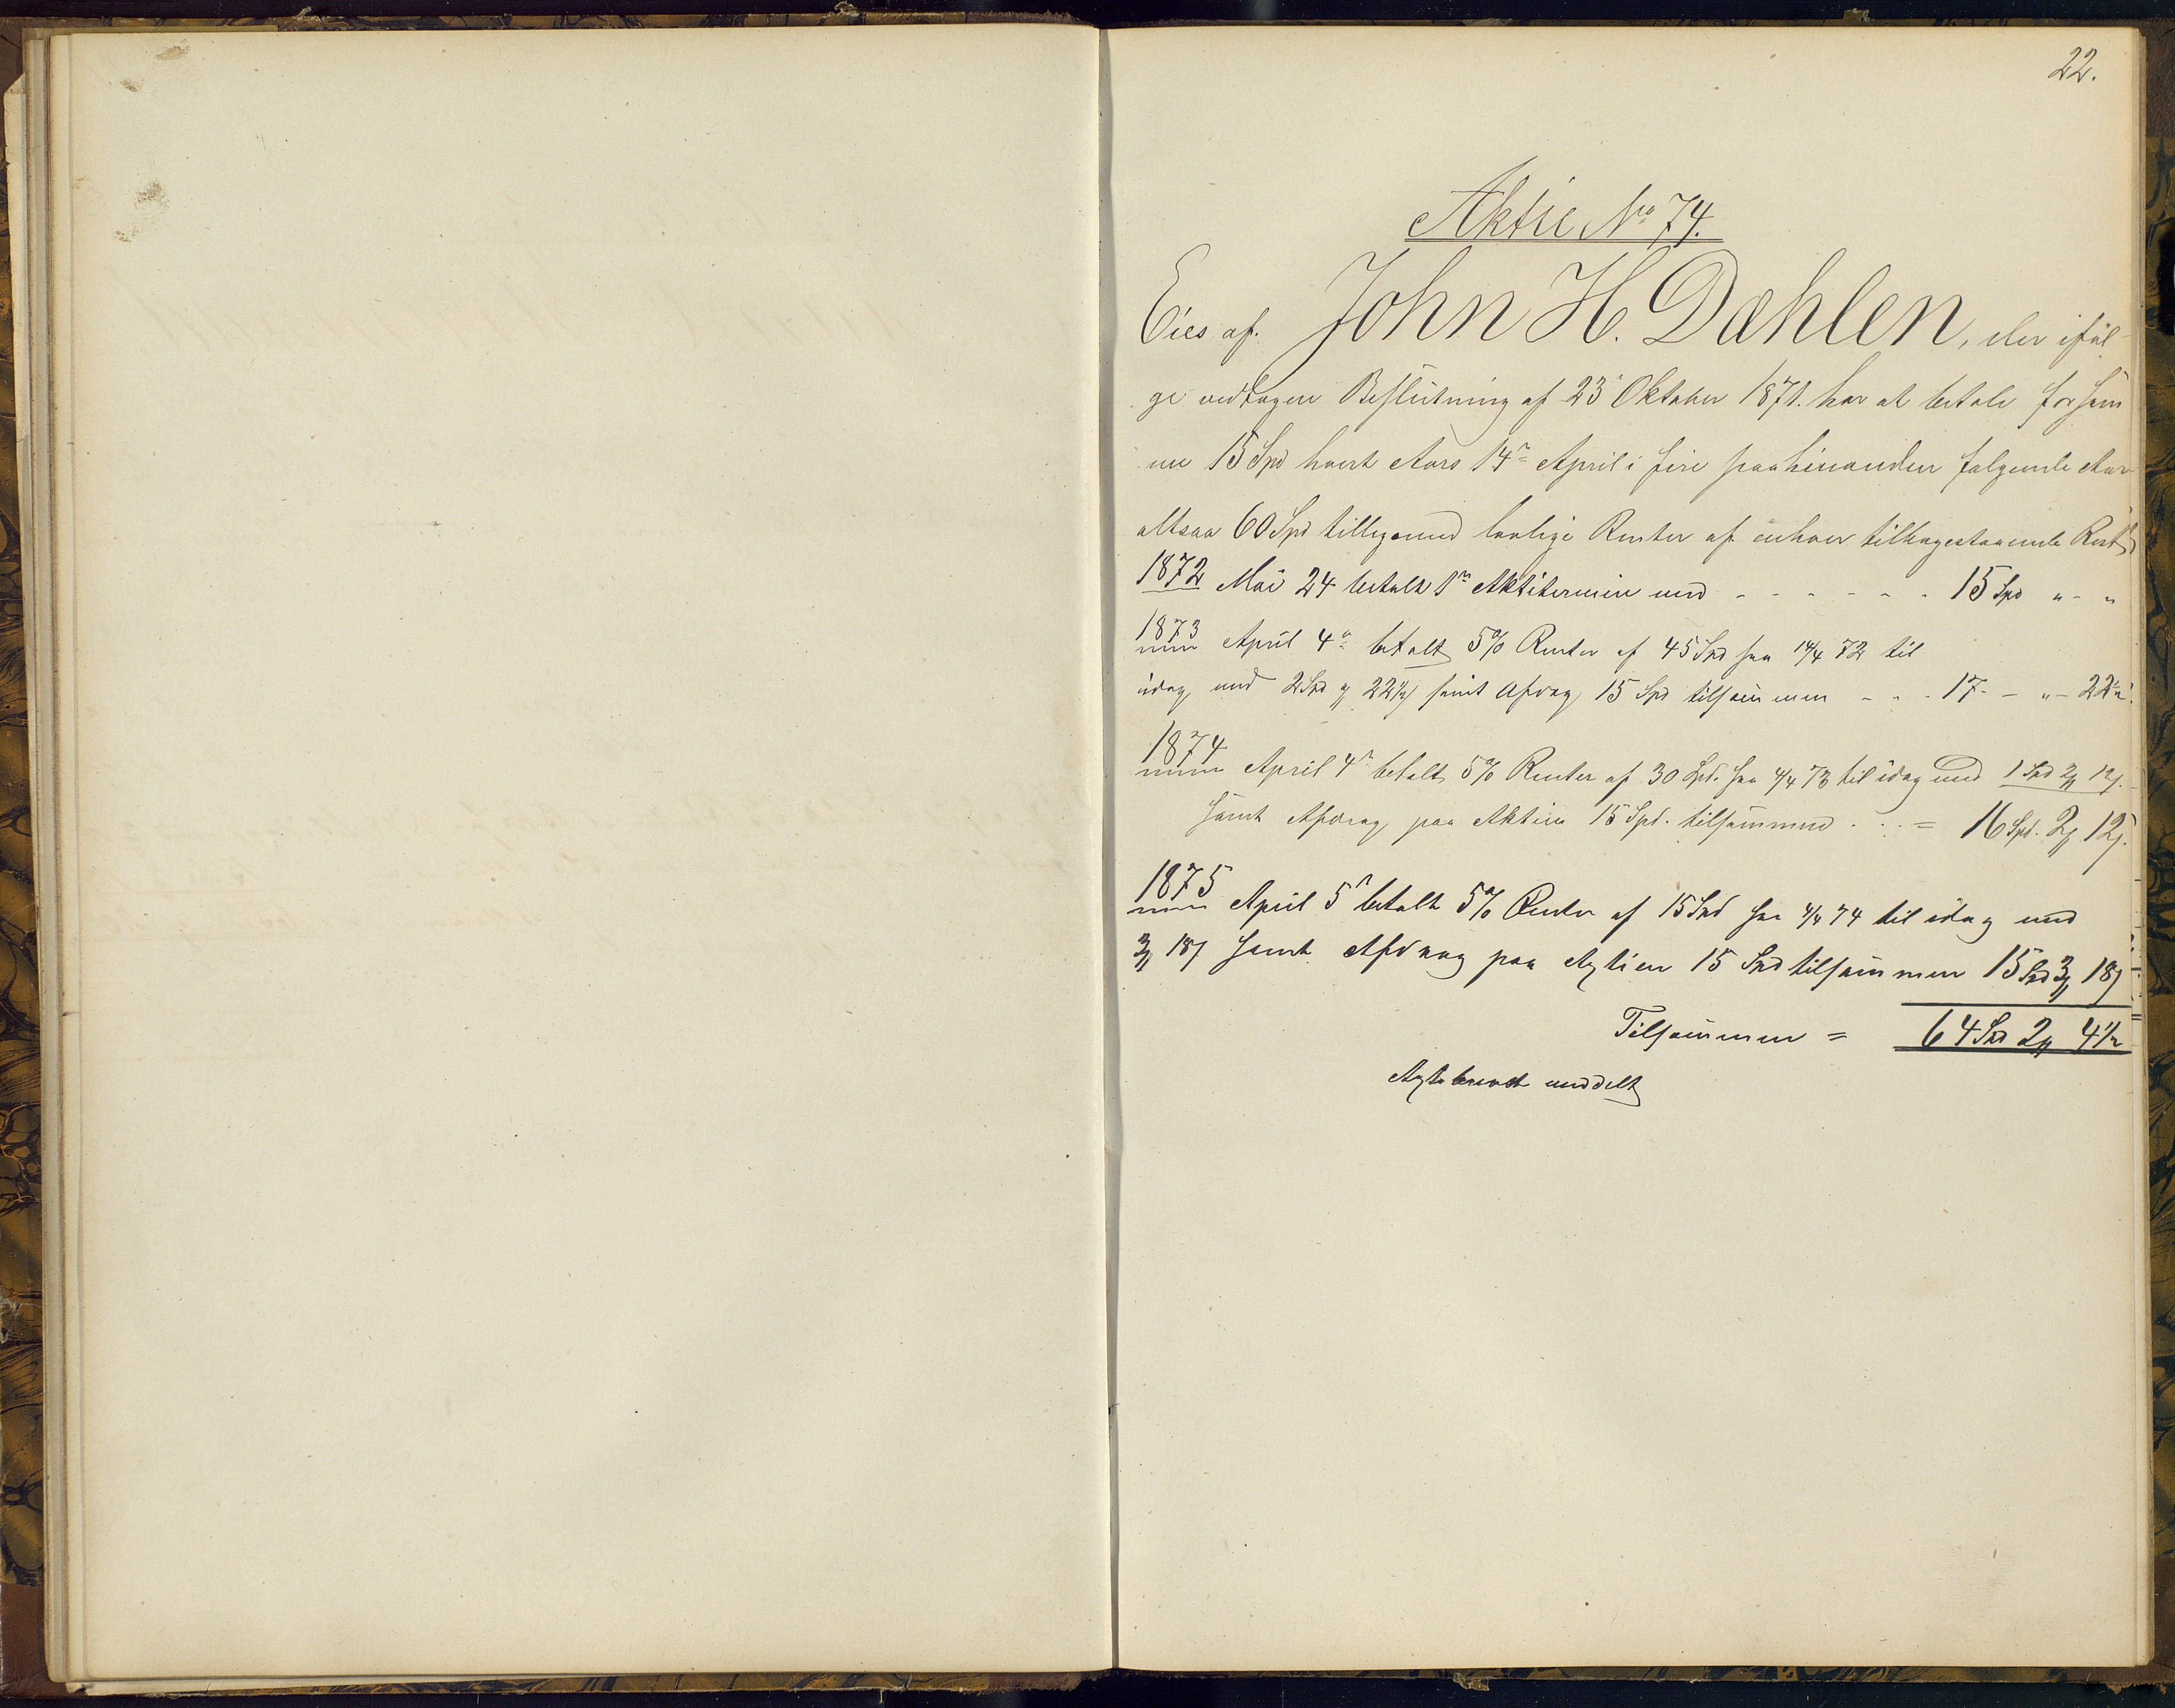 22.
Aktie No 74.
Eies af John H. Dæhlen, der iføl-
ge vedtagen Beslutning af 23 Oktober 1871. har at betale for sam
me 15 Spd hvert Aars 14de April i fire paahinanden følgende Aar
altsaa 60 Spd tilligemed lovlige Renter af enhver tilbagestaaende Rest
1872 Mai 24 betalt 1ste Aktietermin med - - - - - - 15 Spd " - "
1873 April 4de betalt 5% Renter af 45 Spd fra 14/4 72 til
idag med 2 Spd " 22 1/2 samt Afdrag 15 Spd tilsammen - - - 17 - " - 22 1/2
1874 April 4de betalt 5% Renter af 30 Spd. fra 4/4 73 til idag med 1 Spd 2 12
samt Afdrag paa Aktien 15 Spd. tilsammen . . . = 16 Spd. 2 12
1875 April 5te betalt 5% Renter af 15 Spd fra 4/4 74 til idag med
3 18 samt Afdrag paa Agtien 15 Spd tilsammen 15 Spd 3 18
Tilsammen = 64 Spd 2 4 1/2
Agtiebrevet meddelt